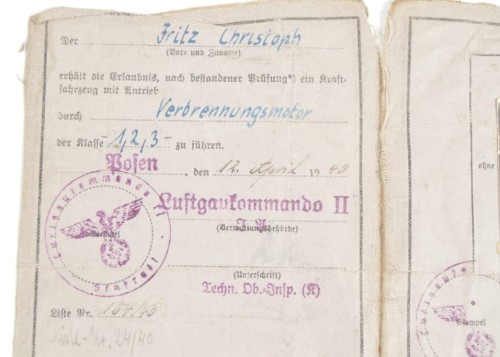 Der Fritz Christoph
(Vor- und Zuname)
erhält die Erlaubnis, nach bestandener Prüfung*) ein Kraft-
fahrzeug mit Antrieb
durch Verbrennungsmotor
der Klasse 1,2,3- zu führen.
Posen, den 12. April 1940
Luftgaukommando II
I.A.
(Verwaltungsbehörde)
(Unterschrift)
Techn. Ob.-Insp. (K)
Liste Nr.
Liste-Nr. 24/40
ohne
Stempel